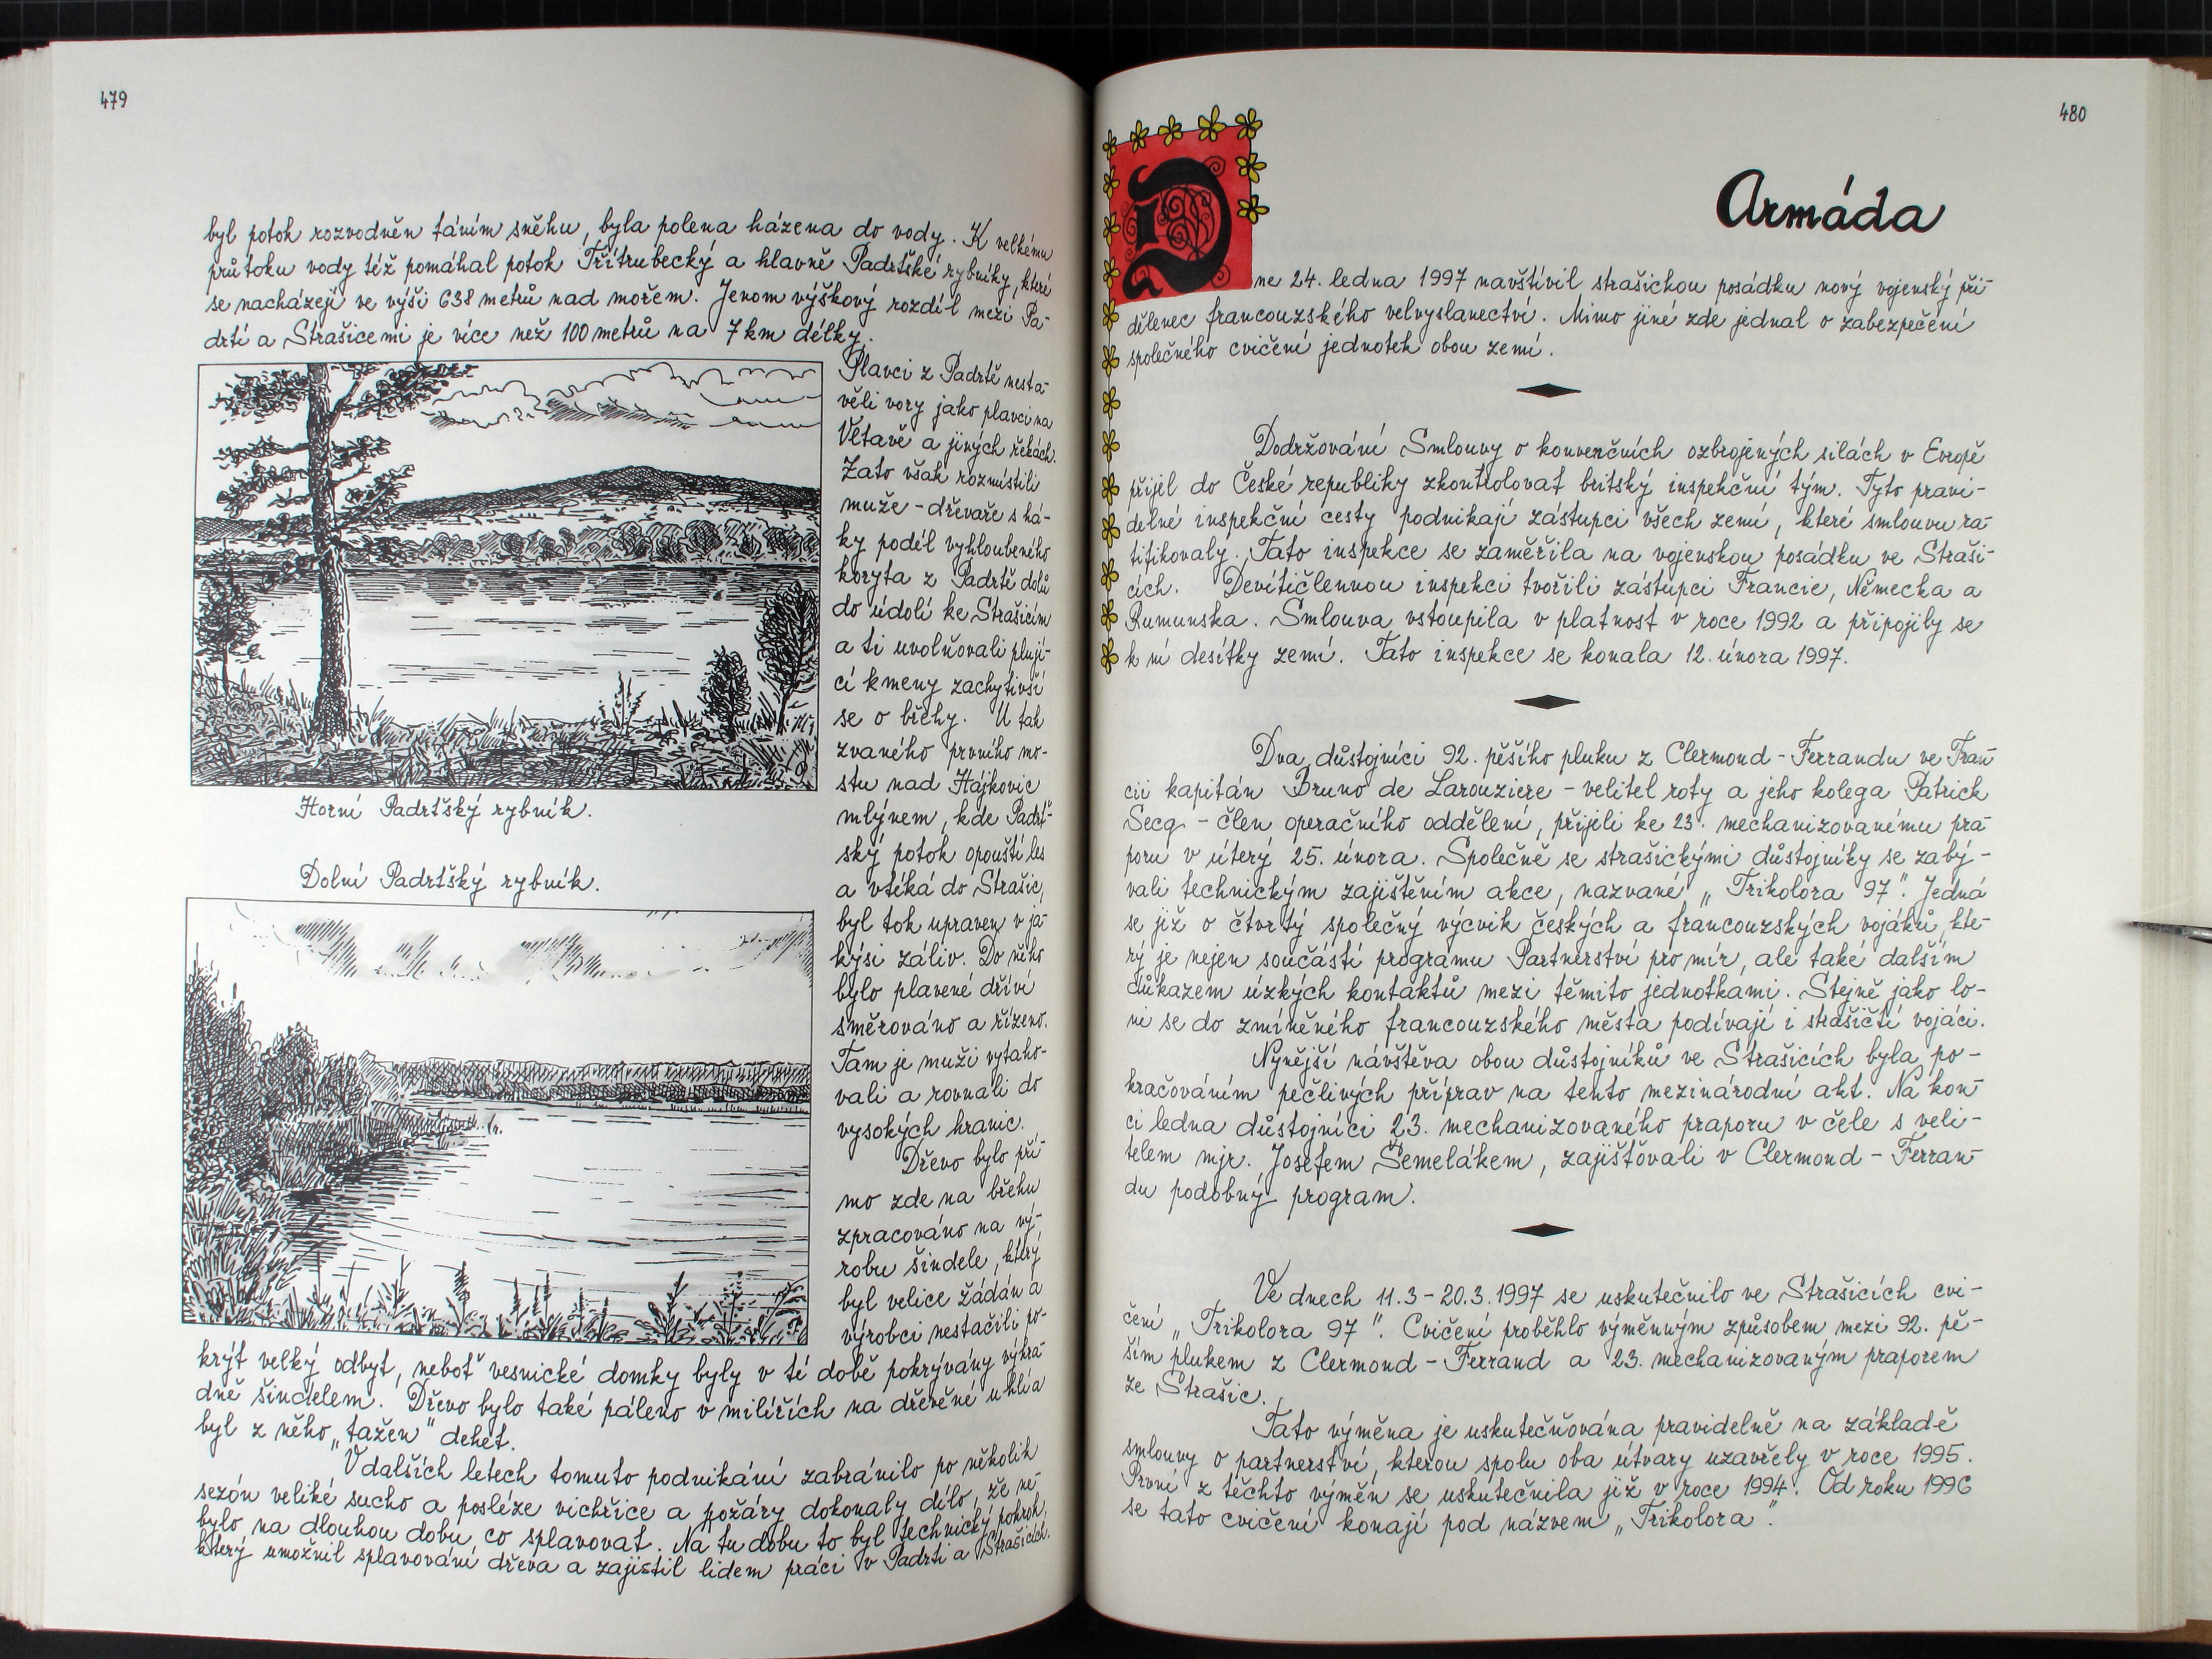 479
byl potok rozvodněn táním sněhu, byla polena házena do vody. K velkému
průtoku vody též pomáhal potok Třítrubecký a hlavně Padrťské rybníky, které
se nacházejí ve výši 638 metrů nad mořem. Jenom výškový rozdíl mezi Pa-
drtí a Strašicemi je více než 100 metrů na 7 km délky.
Plavci z Padrtě nesta-
věli vory jako plavci na
Vltavě a jiných řekách.
Zato však rozmístili
muže - dřevaře s há-
ky podél vyhloubeného
koryta z Padrtě dolů
do údolí ke Strašicím
a ti uvolňovali plují-
cí kmeny zachytivší
se o břehy. U tak
zvaného prvního mo-
stu nad Hájkovic
mlýnem, kde Padrť-
ský potok opouští les
a vtéká do Strašic,
byl tok upraven v ja-
kýsi záliv. Do něho
bylo plavené dříví
směrováno a řízeno.
Tam je muži vytaho-
vali a rovnali do
vysokých hranic.
Dřevo bylo pří-
mo zde na břehu
zpracováno na vý-
robu šindele, který
byl velice žádán a
výrobci nestačili po-
Horní Padrťský rybník.
Dolní Padrťský rybník.
krýt velký odbyt, neboť vesnické domky byly v té době pokrývány výhra-
dně šindelem. Dřevo bylo také páleno v milířích na dřevěné uhlí a
byl z něho „tažen" dehet.
V dalších letech tomuto podnikání zabránilo po několik
sezón veliké sucho a posléze vichřice a požáry dokonaly dílo, že ne-
bylo na dlouhou dobu, co splavovat. Na tu dobu to byl technický pokrok,
který umožnil splavování dřeva a zajistil lidem práci v Padrti a Strašicích.
480
Armáda
Dne 24. ledna 1997 navštívil strašickou posádku nový vojenský při-
dělenec francouzského velvyslanectví. Mimo jiné zde jednal o zabezpečení
společného cvičení jednotek obou zemí.
Dodržování Smlouvy o konvenčních ozbrojených silách v Evropě
přijel do České republiky zkontrolovat britský inspekční tým. Tyto pravi-
delné inspekční cesty podnikají zástupci všech zemí, které smlouvu ra-
tifikovaly. Tato inspekce se zaměřila na vojenskou posádku ve Straši-
cích. Devítičlennou inspekci tvořili zástupci Francie, Německa a
Rumunska. Smlouva vstoupila v platnost v roce 1992 a připojily se
k ní desítky zemí. Tato inspekce se konala 12. února 1997.
Dva důstojníci 92. pěšího pluku z Clermond - Ferrandu ve Fran-
cii kapitán Bruno de Larouziere - velitel roty a jeho kolega Patrick
Secq - člen operačního oddělení, přijeli ke 23. mechanizovanému pra-
poru v úterý 25. února. Společně se strašickými důstojníky se zabý-
vali technickým zajištěním akce, nazvané „Trikolora 97". Jedná
se již o čtvrtý společný výcvik českých a francouzských vojáků, kte-
rý je nejen součástí programu Partnerství pro mír, ale také dalším
důkazem úzkých kontaktů mezi těmito jednotkami. Stejně jako lo-
ni se do zmíněného francouzského města podívají i strašičtí vojáci.
Nynější návštěva obou důstojníků ve Strašicích byla po-
kračováním pečlivých příprav na tento mezinárodní akt. Na kon-
ci ledna důstojníci 23. mechanizovaného praporu v čele s veli-
telem mjr. Josefem Šemelákem, zajišťovali v Clermond - Ferran-
du podobný program.
Ve dnech 11.3 - 20.3.1997 se uskutečnilo ve Strašicích cvi-
čení „Trikolora 97". Cvičení proběhlo výměnným způsobem mezi 92. pě-
ším plukem z Clermond - Ferrand a 23. mechanizovaným praporem
ze Strašic.
Tato výměna je uskutečňována pravidelně na základě
smlouvy o partnerství, kterou spolu oba útvary uzavřely v roce 1995.
První z těchto výměn se uskutečnila již v roce 1994. Od roku 1996
se tato cvičení konají pod názvem „Trikolora".